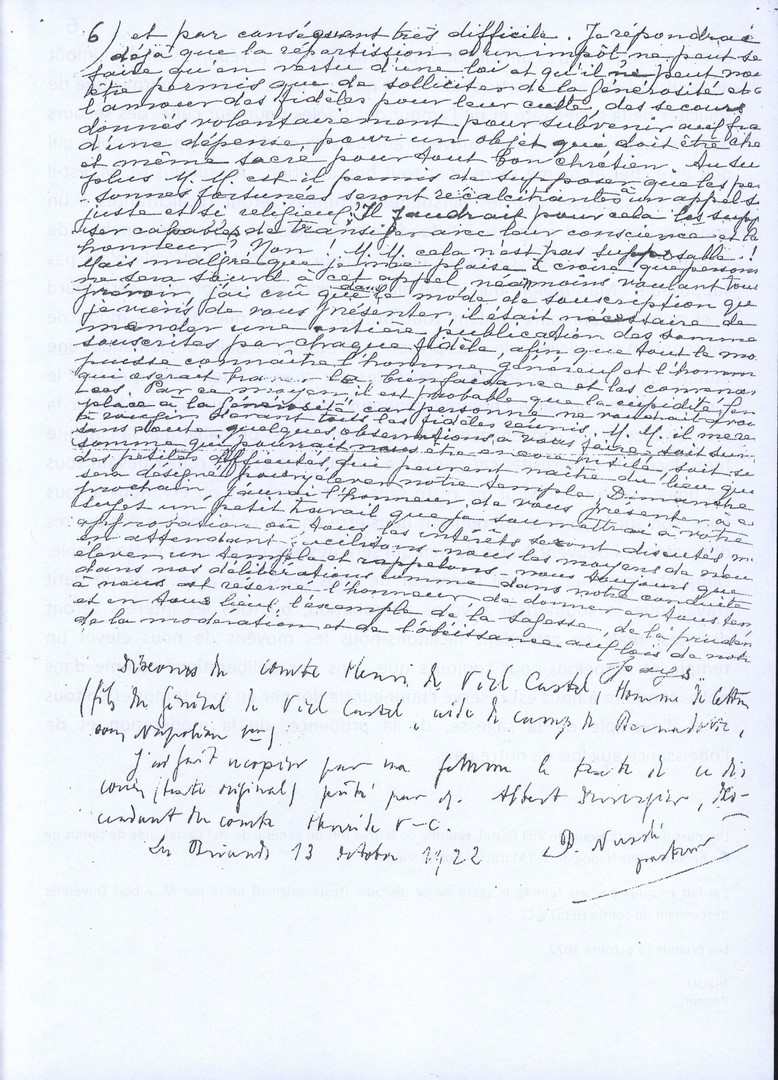 6) et par conséquent très difficile. Je répondrai
déjà que la répartission d'un impôt ne peut se
faire qu'en vertu d'une loi et qu'il ne peut nous
être permis que de solliciter de la générosité et d
l'amour des fidèles pour leur culte, des secours
donnés volontairement pour subvenir aux fra
d'une dépense, pour un objet que doit être che
et même sacré pour tout bon chrétien. Au su
plus M.M. est-il permis de supposer que les per
sonnes fortunées seront récalcitrantes à un appel si
juste et si religieux, Il faudrait pour cela les supp
ser capables de transiger avec leur conscience et l'
honneur? Non! M.M. cela n'est pas supposable!!
Mais malgré que je me plaise à croire que personne
ne sera sourd à cet appel, néanmoins voulant tout
prévoir, j'ai crû que dans le mode de souscription que
je viens de vous présenter, il était nécessaire de
mander une entière publication des somme
souscrites par chaque fidèle, afin que tout le mo
puisse connaître l'homme généreux et l'homm
qui oserait la bienfaisance et les
Par ce moyen, il est probable que la cupidité fera
place à la générosité car personne ne voudrait avoi
à rougir devant tous les fidèles réunis. M.M. il me re
sans doute quelques observations à vous faire soit sur
somme qui pourrait nous être encore utile, soit su
des petites difficultés qui peuvent naître du lieu que
sera désigné pour élever notre temple. Dimanche
prochain, j'aurai l'honneur de vous présenter à ce
sujet un petit travail que je soumettrai à votre
approbation où tous les intérêts seront discutés m
en attendant, facilitons-nous les moyens de nou
élever un temple et rappelons-nous toujours que
dans nos délibérations comme dans notre conduite
à nous est réservé l'honneur de donner en tous tem
et en tous lieux, l'exemple de la sagesse, de la pruden
de la modération et de l'obéissance aux lois de notre
pays"
Discours du comte Henri de Viel Castel, Homme de lettres
(fils du général de Viel Castel, aide de camp de Bernadotte,
sous Napoléon 1er)
J'ai fait recopier par ma femme le texte de ce dis
cours (texte original) prêté par M. Albert Duvergier, des-
cendant du comte Henri de V-C.
Les Briands 13 octobre 1922
Nusslé
pasteur